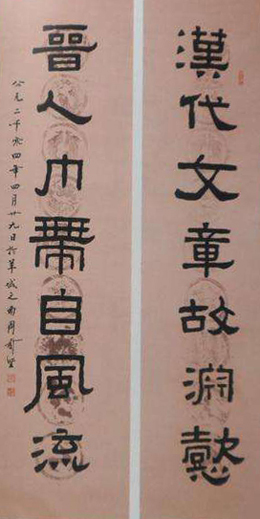 漢代文章故淵懿
晉人巾帶自風流
公元二千零四年四月廿九日於羊城之南